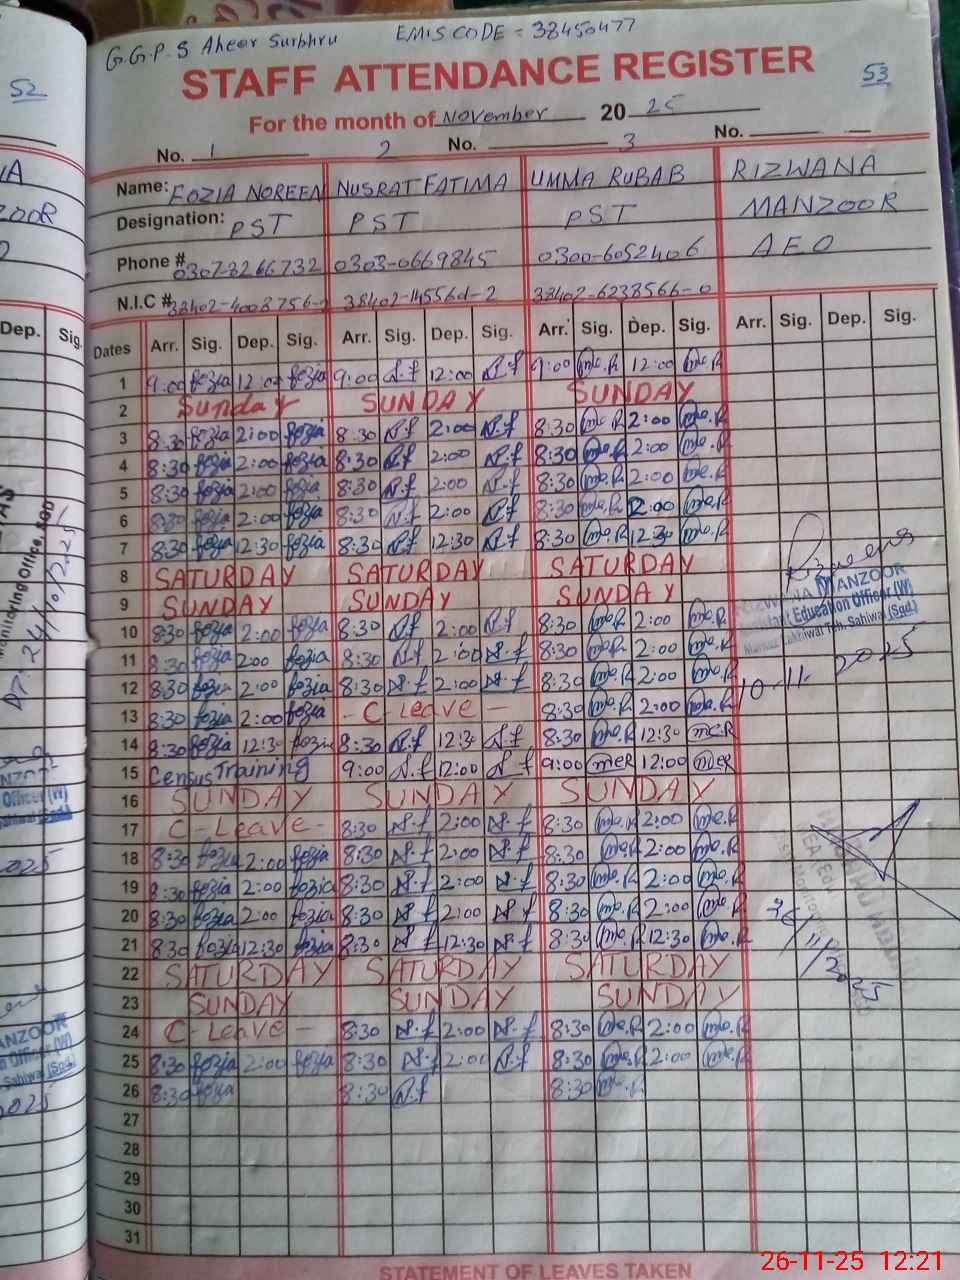 G.G.P.S Aheer Surbhru EMIS CODE = 38450477
52
STAFF ATTENDANCE REGISTER 53
For the month of November 2025
No. 1 2 No. 3 No.
Name: FOZIA NOREEN NUSRAT FATIMA UMMA RUBAB RIZWANA
Designation: PST PST PST MANZOOR
Phone # 03073266732 0303-0669845 0300-6052406 AEO
N.I.C # 38402-6238566-0
Dep. Sig.
Dates Arr. Sig. Dep. Sig. Arr. Sig. Dep. Sig. Arr. Sig. Dep. Sig. Arr. Sig. Dep. Sig.
1 9:00 fozia 12:00 fozia 9:00 N.f 12:00 N.f 9:00 me.R 12:00 me.R
2 Sunday SUNDAY SUNDAY
3 8:30 fozia 2:00 fozia 8:30 N.f 2:00 N.f 8:30 me.R 2:00 me.R
4 8:30 fozia 2:00 fozia 8:30 N.f 2:00 N.f 8:30 me.R 2:00 me.R
5 8:30 fozia 2:00 fozia 8:30 N.f 2:00 N.f 8:30 me.R 2:00 me.R
6 8:30 fozia 2:00 fozia 8:30 N.f 2:00 N.f 8:30 me.R 2:00 me.R
7 8:30 fozia 12:30 fozia 8:30 N.f 12:30 N.f 8:30 me.R 12:30 me.R
8 SATURDAY SATURDAY SATURDAY
9 SUNDAY SUNDAY SUNDAY
10 8:30 fozia 2:00 fozia 8:30 N.f 2:00 N.f 8:30 me.R 2:00 me.R
11 8:30 fozia 2:00 fozia 8:30 N.f 2:00 N.f 8:30 me.R 2:00 me.R
12 8:30 fozia 2:00 fozia 8:30 N.f 2:00 N.f 8:30 me.R 2:00 me.R
13 8:30 fozia 2:00 fozia - C-Leave - 8:30 me.R 2:00 me.R
14 8:30 fozia 12:30 fozia 8:30 N.f 12:30 N.f 8:30 me.R 12:30 meR
15 Census Training 9:00 N.f 12:00 N.f 9:00 meR 12:00 meR
16 SUNDAY SUNDAY SUNDAY
17 C-Leave- 8:30 N.f 2:00 N.f 8:30 me.R 2:00 me.R
18 8:30 fozia 2:00 fozia 8:30 N.f 2:00 N.f 8:30 me.R 2:00 me.R
19 8:30 fozia 2:00 fozia 8:30 N.f 2:00 N.f 8:30 me.R 2:00 me.R
20 8:30 fozia 2:00 fozia 8:30 N.f 2:00 N.f 8:30 me.R 2:00 me.R
21 8:30 fozia 12:30 fozia 8:30 N.f 12:30 N.f 8:30 me.R 12:30 me.R
22 SATURDAY SATURDAY SATURDAY
23 SUNDAY SUNDAY SUNDAY
24 C-Leave - 8:30 N.f 2:00 N.f 8:30 me.R 2:00 me.R
25 8:30 fozia 2:00 fozia 8:30 N.f 2:00 N.f 8:30 me.R 2:00 me.R
26 8:30 fozia 8:30 N.f 8:30 me.R
27
28
29
30
31
RIZWANA MANZOOR
Education Officer (W)
Teh. Sahiwal (Sgd.)
10-11-2025
11/2025
STATEMENT OF LEAVES TAKEN
26-11-25 12:21